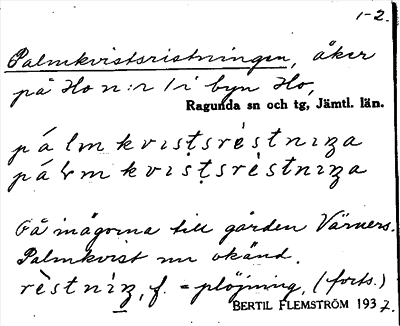 1-2.
Palmkvistsristningen, åker
på Ho n:r 1 i byn Ho,
Ragunda sn och tg, Jämtl. län.
pálmkvisṭsrèstnıza
pá𝑟mkvisṭsrèstnıza
På inägorna till gården Värners.
Palmkvist nu okänd.
rèstnìz, f. = plöjning, (forts.)
BERTIL FLEMSTRÖM 1937.